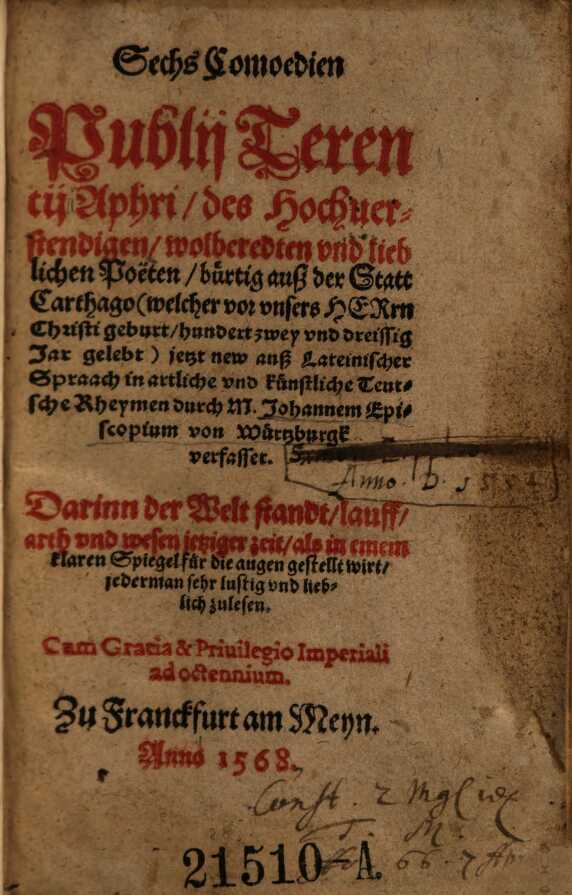 Sechs Comoedien
Publij Teren
tij Aphri / des Hochuer-
stendigen / wolberedten vnd lieb
lichen Poëten / bürtig auß der Statt
Carthago (welcher vor vnsers HERrn
Christi geburt / hundert zwey vnd dreissig
Jar gelebt) jetzt new auß Lateinischer
Spraach in artliche vnd künstliche Teut-
sche Rheymen durch M. Johannem Epi-
scopium von Würtzburgk
verfasset.
Anno.
Darinn der Welt standt / lauff /
arth vnd wesen jetziger zeit / als in einem
klaren Spiegel für die augen gestellt wirt /
jederman sehr lustig vnd lieb-
lich zulesen.
Cum Gratia & Priuilegio Imperiali
ad octennium.
Zu Franckfurt am Meyn.
Anno 1568.
Const. 2
M.
21510-A.